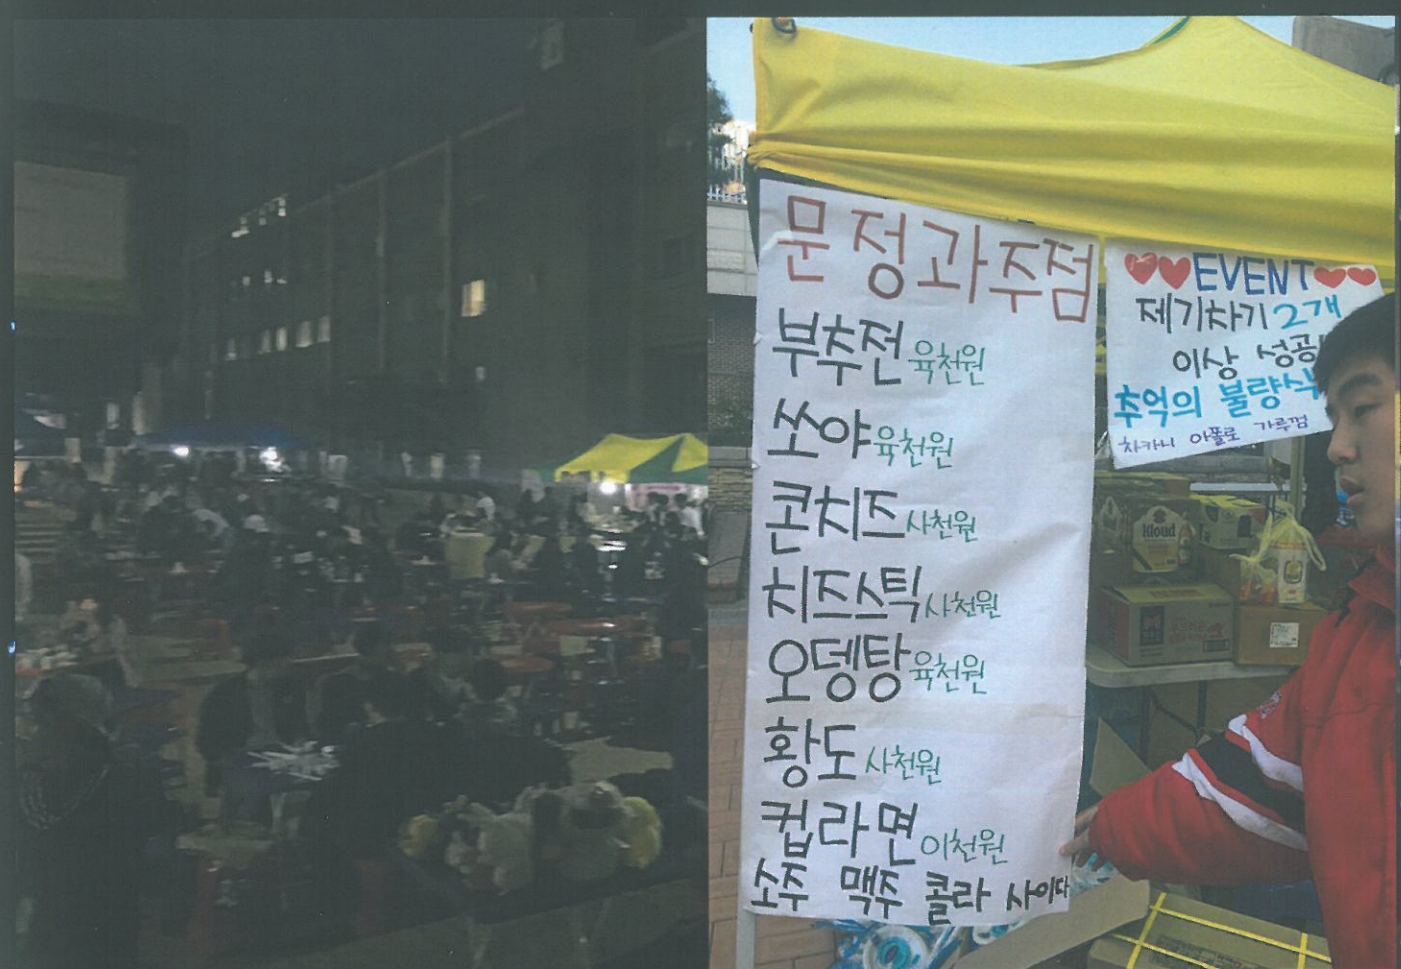 문정과주점
부추전 육천원
쏘야 육천원
콘치즈 사천원
치즈스틱 사천원
오뎅탕 육천원
황도 사천원
컵라면 이천원
소주 맥주 콜라 사이다
EVENT
제기차기 2개
이상 성공!
추억의 불량식
차카니 아폴로 가루껌
Kloud